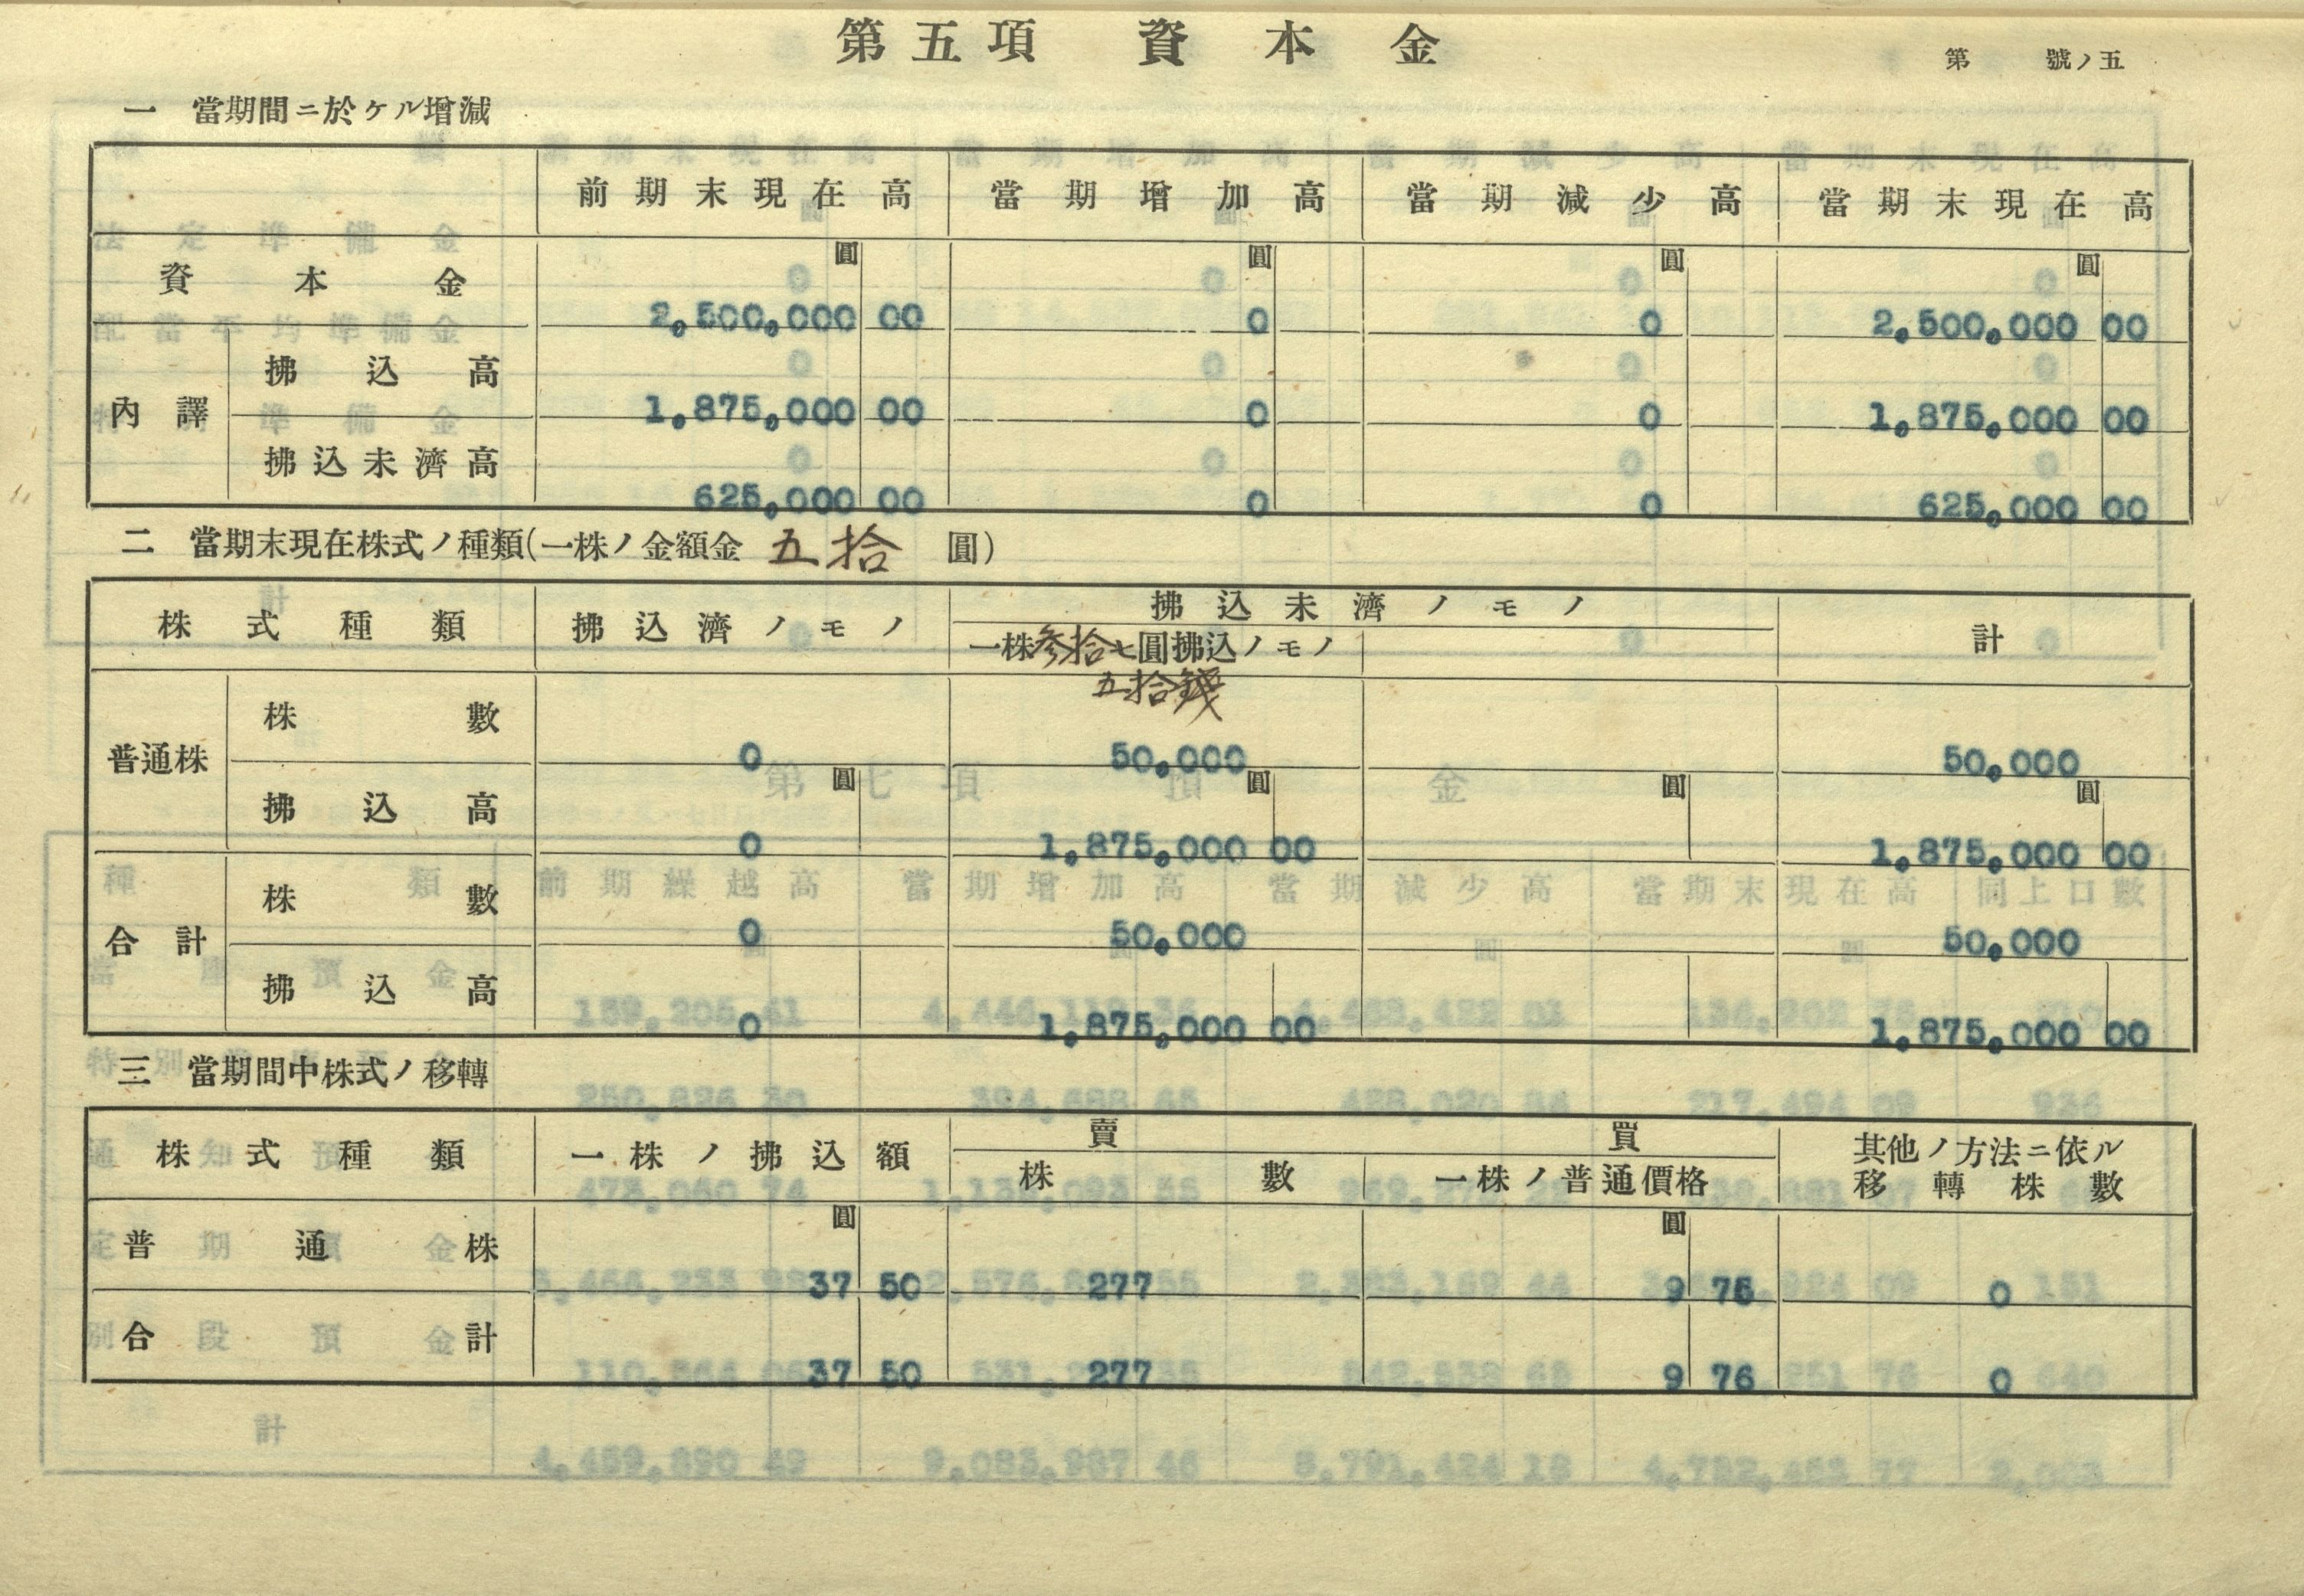 第五項　資本金
第　號ノ五
一　當期間ニ於ケル增減
前期末現在高　當期增加高　當期減少高　當期末現在高
圓　圓　圓　圓
資本金　2,500,000 00　0　0　2,500,000 00
內譯　拂込高　1,875,000 00　0　0　1,875,000 00
拂込未濟高　625,000 00　0　0　625,000 00
二　當期末現在株式ノ種類(一株ノ金額金 五拾 圓)
株式種類　拂込濟ノモノ　拂込未濟ノモノ　計
一株參拾七圓拂込ノモノ
五拾錢
普通株　株數　0　50,000　50,000
圓　圓　圓　圓
拂込高　0　1,875,000 00　1,875,000 00
合計　株數　0　50,000　50,000
拂込高　0　1,875,000 00　1,875,000 00
三　當期間中株式ノ移轉
株式種類　一株ノ拂込額　賣買　其他ノ方法ニ依ル
株數　一株ノ普通價格　移轉株數
圓　圓
普通株　37 50　277　9 76　0
合計　37 50　277　9 76　0